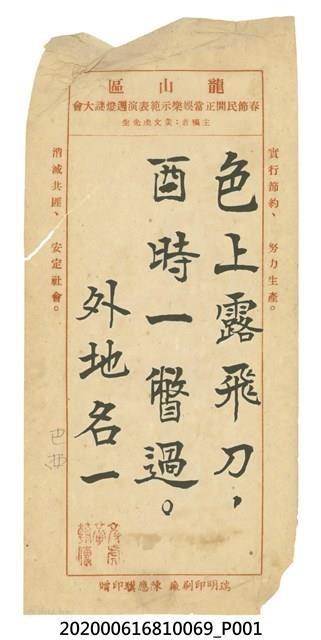 龍山區
春節民間正當娛樂示範表演週燈謎大會
主編者：黃文虎先生
實行節約、努力生產。
色上露飛刀，
酉時一瞥過。
外地名一
消滅共匪、安定社會。
巴西
瑞明印刷廠 陳應騏印贈
202000616810069_P001